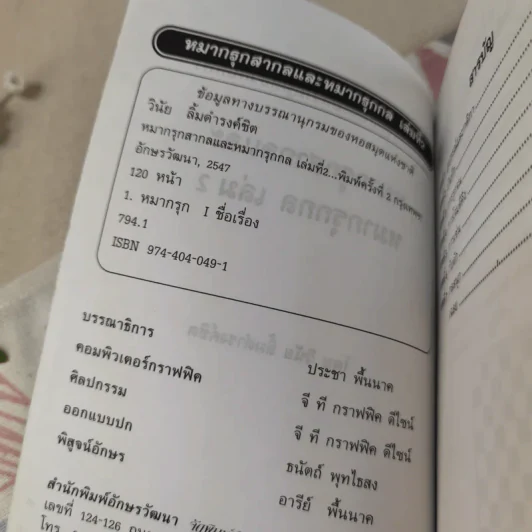 หมากรุกสากลและหมากรุกกล เล่ม
ข้อมูลทางบรรณานุกรมของหอสมุดแห่งชาติ
วินัย ลิ้มดำรงค์ชิต
หมากรุกสากลและหมากรุกกล เล่มที่2...พิมพ์ครั้งที่ 2 กรุงเทพฯ
อักษรวัฒนา, 2547
120 หน้า
1. หมากรุก I ชื่อเรื่อง
794.1
ISBN 974-404-049-1
บรรณาธิการ ประชา พื้นนาค
คอมพิวเตอร์กราฟฟิค จี ที กราฟฟิค ดีไซน์
ศิลปกรรม จี ที กราฟฟิค ดีไซน์
ออกแบบปก ธนัตถ์ พุทไธสง
พิสูจน์อักษร อารีย์ พื้นนาค
สำนักพิมพ์อักษรวัฒนา
เลขที่ 124-126 ถนน
โทร
สารบัญ